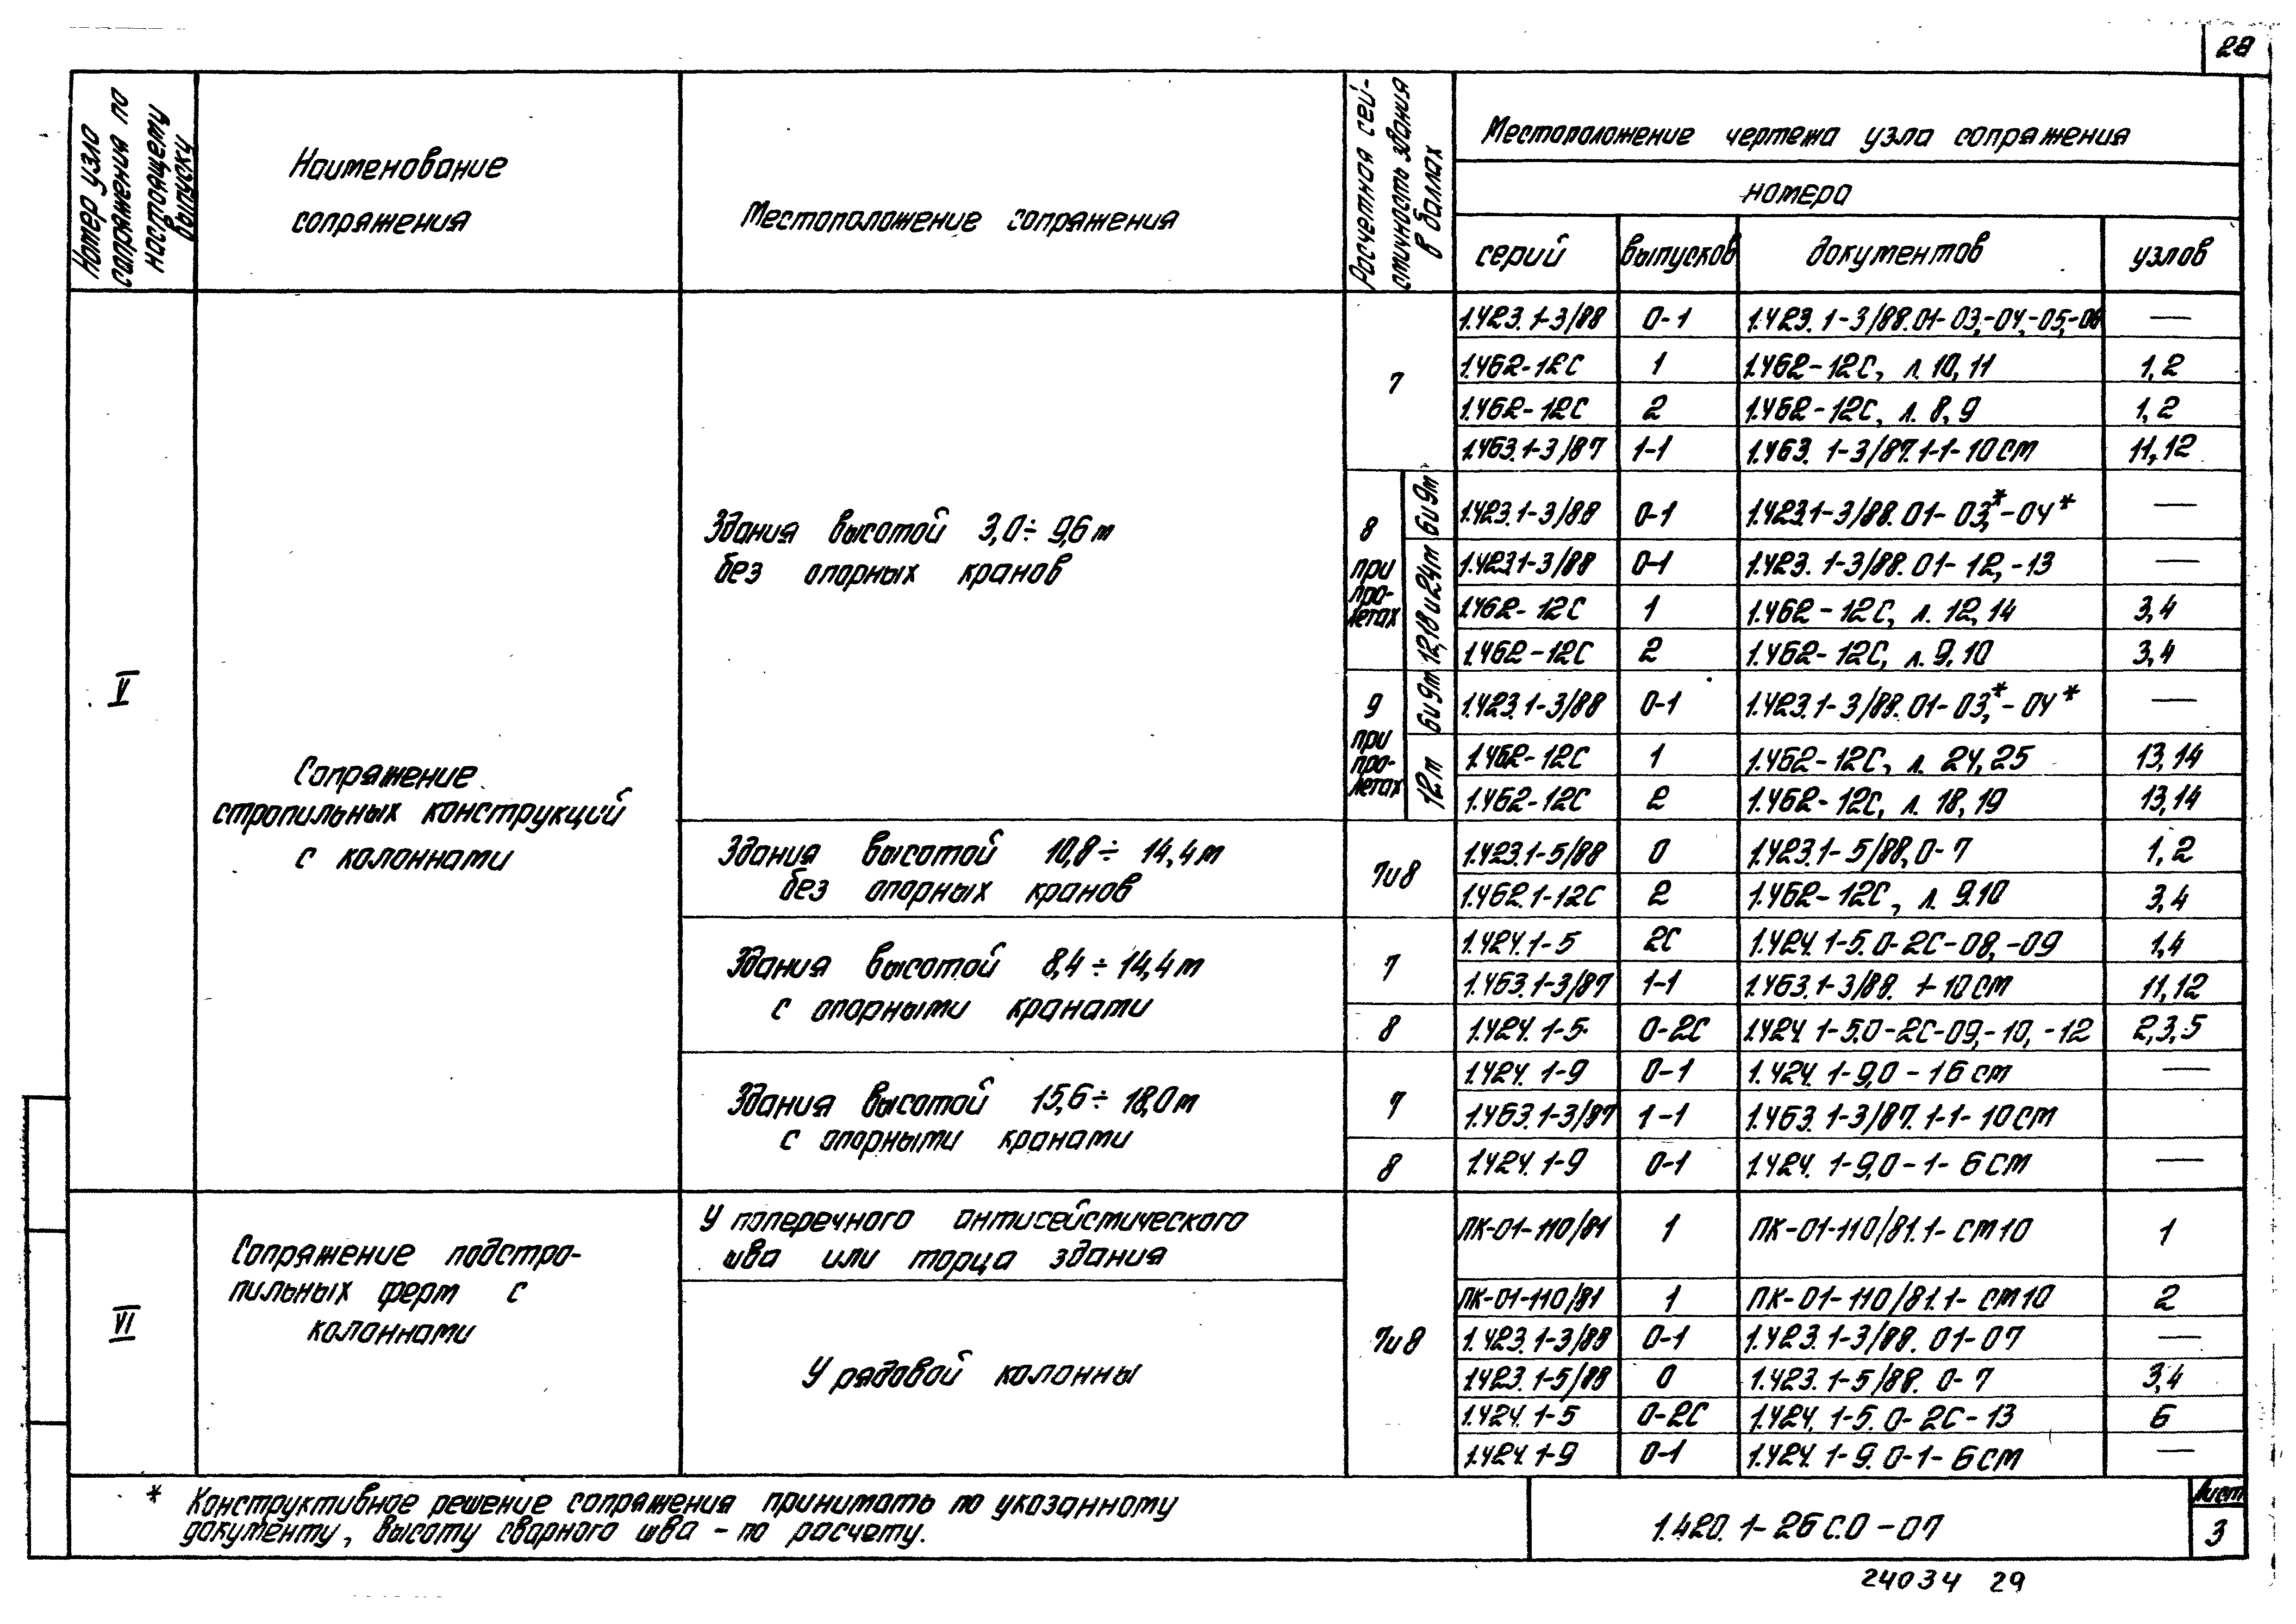 28
Номер узла
сопряжения по
настоящему
выпуску
Наименование
сопряжения
Местоположение сопряжения
Расчетная сей-
смичность здания
в баллах
Местоположение чертежа узла сопряжения
номера
серий выпусков документов узлов
V
Сопряжение
стропильных конструкций
с колоннами
Здания высотой 3,0÷9,6м
без опорных кранов
7
1.423.1-3/88 0-1 1.423.1-3/88.01-03,-04,-05,-06 —
1.462-12С 1 1.462-12С, л. 10,11 1,2
1.462-12С 2 1.462-12С, л. 8,9 1,2
1.463.1-3/87 1-1 1.463.1-3/87.1-1-10СМ 11,12
8
при
про-
летах
6и9м
1.423.1-3/88 0-1 1.423.1-3/88.01-03,*-04* —
12,18и24м
1.423.1-3/88 0-1 1.423.1-3/88.01-12,-13 —
1.462-12С 1 1.462-12С, л. 12,14 3,4
1.462-12С 2 1.462-12С, л. 9,10 3,4
9
при
про-
летах
6и9м
1.423.1-3/88 0-1 1.423.1-3/88.01-03,*-04* —
12м
1.462-12С 1 1.462-12С, л. 24,25 13,14
1.462-12С 2 1.462-12С, л. 18,19 13,14
Здания высотой 10,8÷14,4м
без опорных кранов
7и8
1.423.1-5/88 0 1.423.1-5/88,0-7 1,2
1.462.1-12С 2 1.462-12С, л. 9.10 3,4
Здания высотой 8,4÷14,4м
с опорными кранами
7
1.424.1-5 2С 1.424.1-5.0-2С-08,-09 1,4
1.463.1-3/87 1-1 1.463.1-3/88. 1-10СМ 11,12
8
1.424.1-5 0-2С 1.424.1-5.0-2С-09,-10,-12 2,3,5
Здания высотой 15,6÷18,0м
с опорными кранами
7
1.424.1-9 0-1 1.424.1-9,0-16см —
1.463.1-3/87 1-1 1.463.1-3/87.1-1-10СМ
8
1.424.1-9 0-1 1.424.1-9,0-1-6СМ —
VI
Сопряжение подстро-
пильных ферм с
колоннами
У поперечного антисейсмического
шва или торца здания
7и8
ПК-01-110/81 1 ПК-01-110/81.1-СМ10 1
У рядовой колонны
ПК-01-110/81 1 ПК-01-110/81.1-СМ10 2
1.423.1-3/88 0-1 1.423.1-3/88.01-07 —
1.423.1-5/88 0 1.423.1-5/88.0-7 3,4
1.424.1-5 0-2С 1.424.1-5.0-2С-13 6
1.424.1-9 0-1 1.424.1-9.0-1-6СМ —
* Конструктивное решение сопряжения принимать по указанному
документу, высоту сварного шва - по расчету.
1.420.1-26С.0-07
Лист
3
24034 29